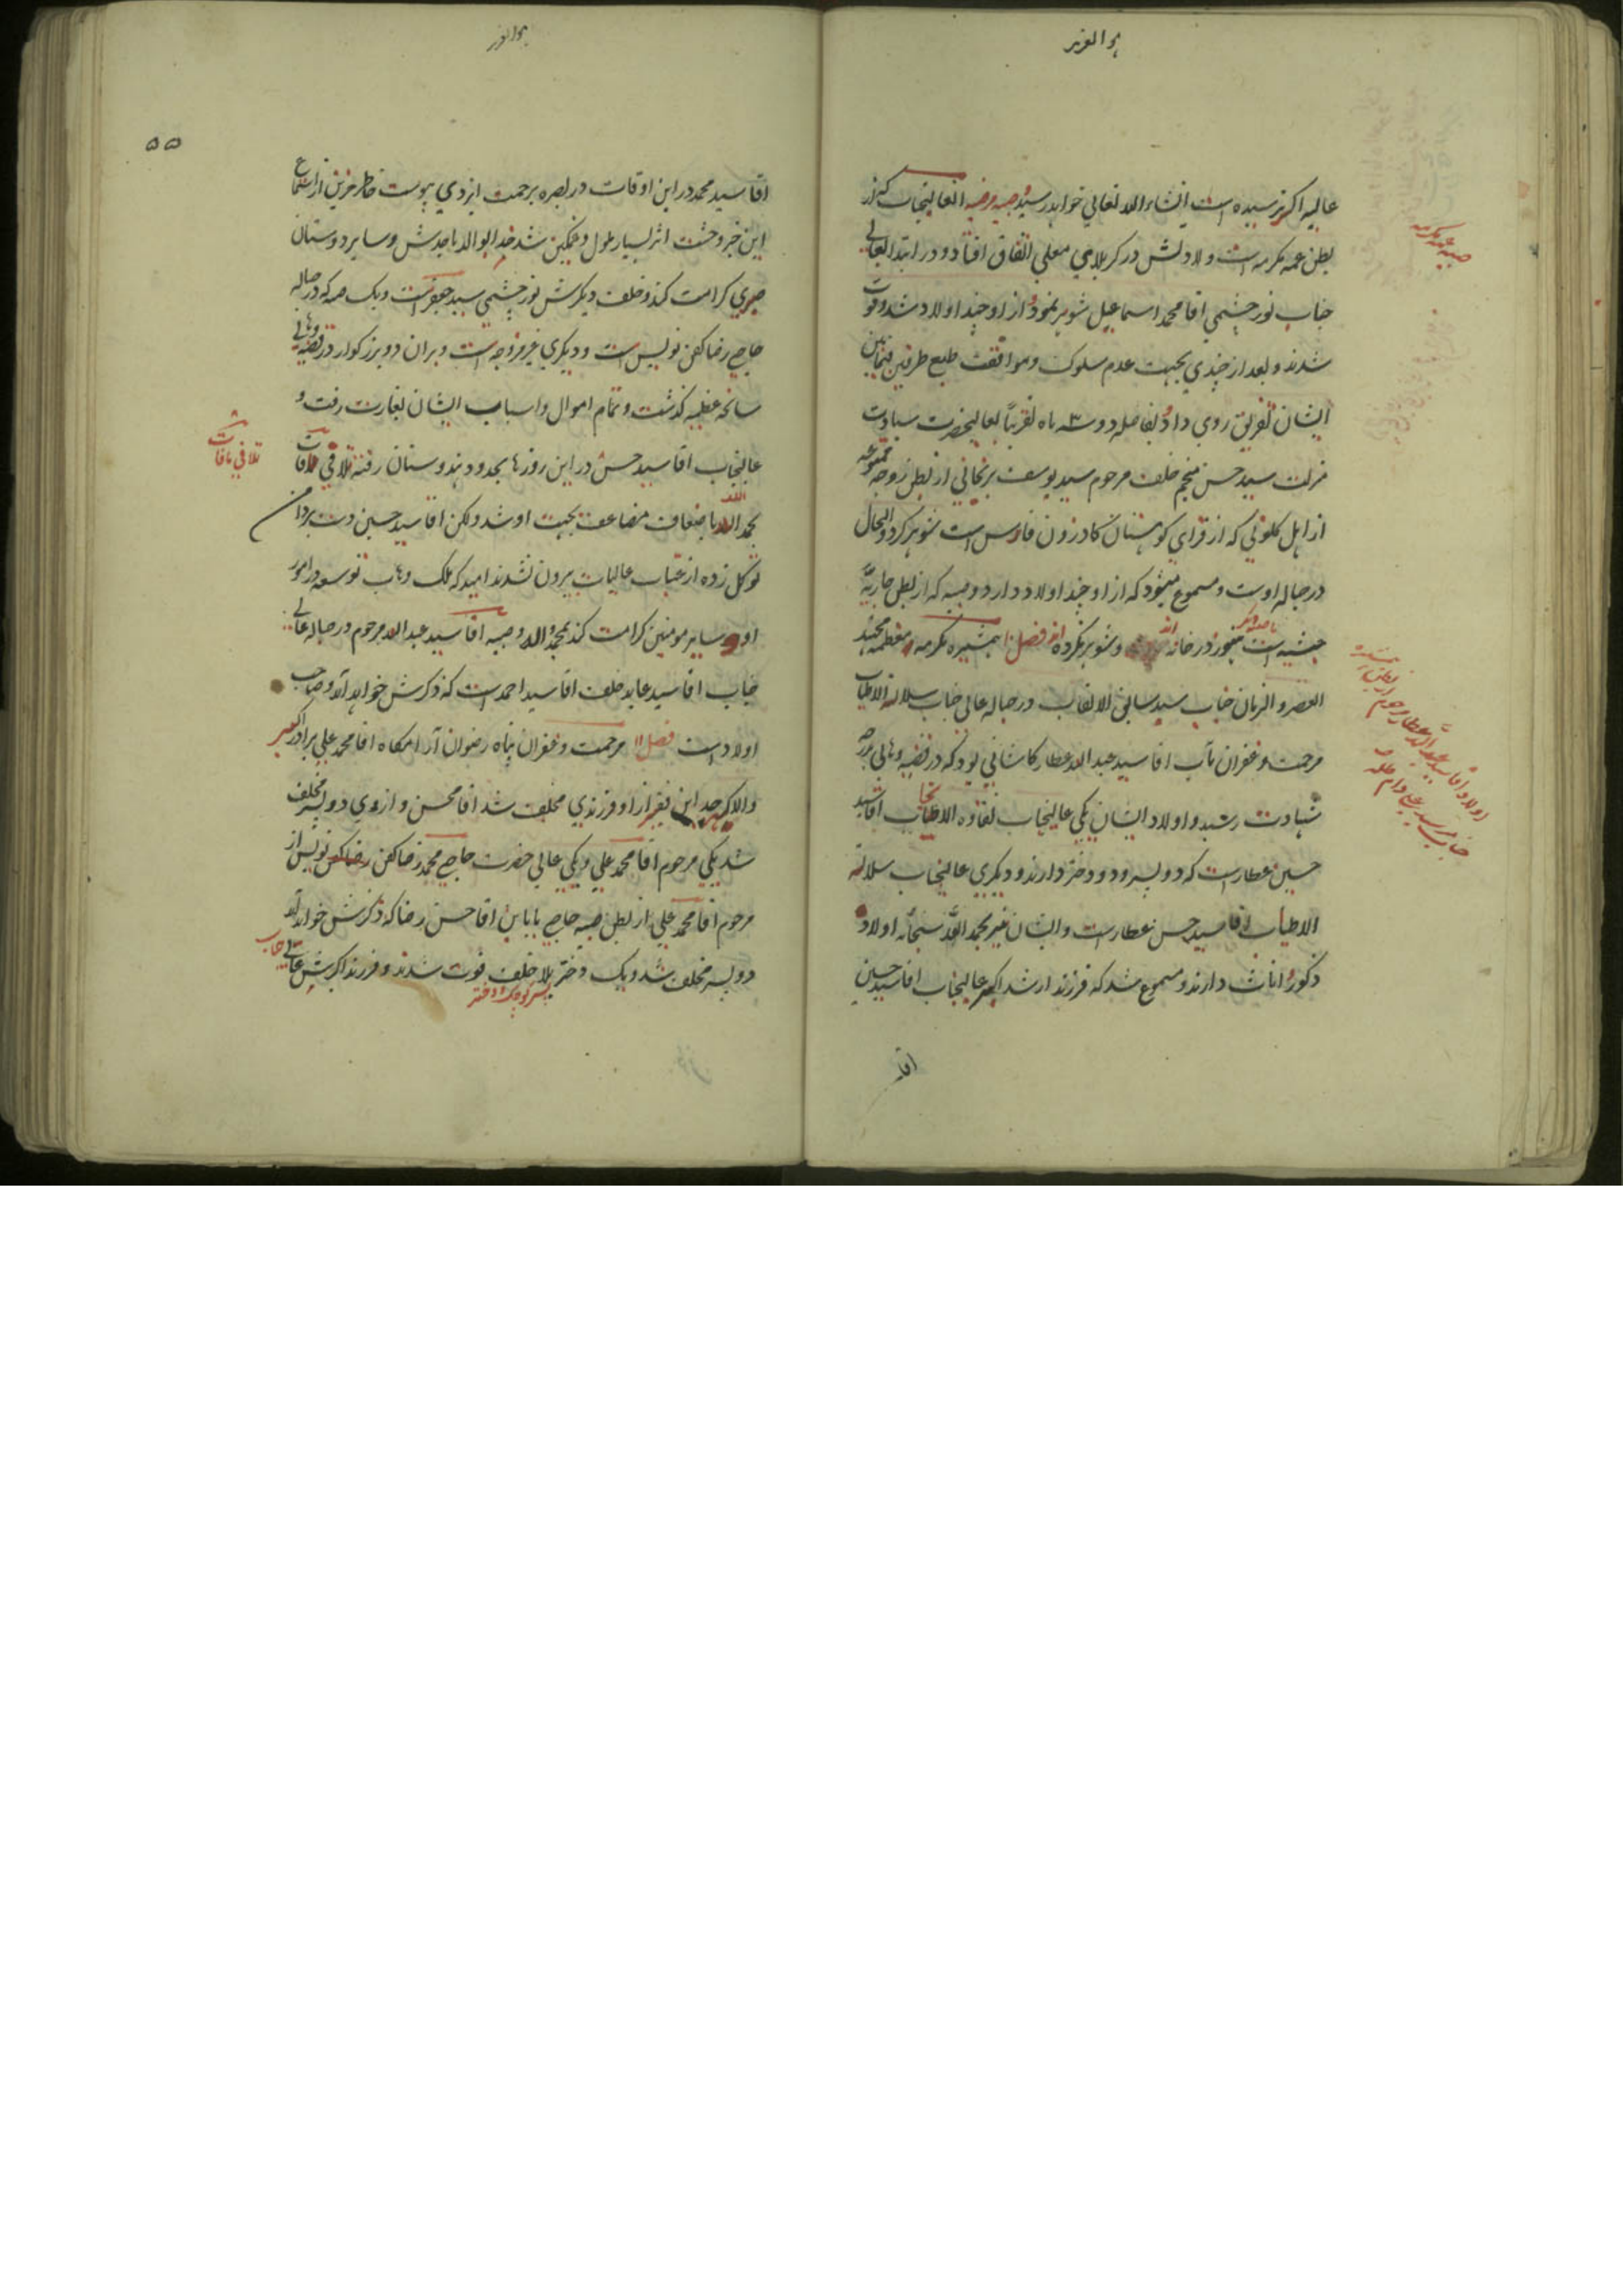 هو العزیز
عالیه اکبر نرسیده است انشاء الله تعالی خواهد رسید و صبیه مرضیه انعالیجاب کز از
بطن عمه مکرمه است ولادتش در کربلای معلی اتفاق افتاد و در ابتدا بعالی
جناب نور چشمی اقا محمد اسماعیل شوهر نمود و از او چند اولاد شد و فوت
شدند و بعد از چندی بجهت عدم سلوک و موافقت طبع طرفین فیمابین
ایشان تفریق روی داد و بفاصله دو سه ماه تقریباً بعالیحضرت سیادت
منزلت سید حسن منجم خلف مرحوم سید یوسف از بطن زوجه ممتوعه
از اهل که از قرای کوهستان کازرون فارس است شوهر کرد و الحال
در حباله اوست و مسموع میشود که از او چند اولاد دارد و صبیه که از بطن جاریهٔ
حبشیه است در خانه و شوهر نکرده فصل ۱۰ همشیره مکرمه و معظمه مجتهد
العصر و الزمان جناب سید سابق الالقاب در حباله عالی جناب سلاله الاطیاب
مرحمت و غفران مآب اقا سید عبد الله عطار کاشانی بود که در قضیه وهابی بدرجه
شهادت رسید و اولاد ایشان یکی عالیجاب نقاوه الاطیاب اقا سید
حسین عطار است که دو پسر و دو دختر دارند و دیگری عالیجاب سلاله
الاطیاب اقا سید حسن عطار است و ایشان نیز بحمد الله سبحانه اولاد
ذکور و اناث دارند و مسموع شد که فرزند ارشد اکبر عالیجاب اقا سید حسین
اقا
صبیه عمه مکرمه
اولاد اقا سید عبد الله عطار مرحوم
هو العزیز
۵۵
اقا سید محمد در این اوقات در بصره برحمت ایزدی پیوست خاطر حزین از استماع
این خبر وحشت اثر بسیار ملول و غمکین شد خدا بوالد ماجدش و سایر دوستان
صبری کرامت کند و خلف دیکرش نور چشمی سید جعفر است و یک صبیه که در حباله
حاجی رضا کفن نویس است و دیکری غیر مزوجه است و بر آن دو بزرکوار در قضیه وهابی
سانحه عظیمه کذشت و تمام اموال و اسباب ایشان بغارت رفت و
عالیجاب اقا سید حسن در این روزها بحدود هندوستان رفته تلافی مافات
بحمد الله باضعاف مضاعف بجهت او شد ولکن اقا سید حسین دست بر دامن
توکل زده از عتبات عالیات بیرون نشدند امید که ملک وهاب توسعه در امور
او و سایر مومنین کرامت کند بمحمد و اله و صبیه اقا سید عبد الله مرحوم در حباله عالی
جناب اقا سید عابد خلف اقا سید احمد است که ذکرش خواهد آمد و صاحب
اولاد است فصل ۱۱ مرحمت و غفران پناه رضوان آرامکاه اقا محمد علی برادر اکبر
والا کهر جد این فقیر از او فرزندی مخلف شد اقا محسن و از وی دو پسر مخلف
شد یکی مرحوم اقا محمد علی و یکی عالی حضرت حاجی محمد رضا کفن نویس از
مرحوم اقا محمد علی از بطن صبیه حاجی بابا بن اقا حسن رضا که ذکرش خواهد آمد
دو پسر مخلف شد و یک دختر بلا خلف فوت شدند و فرزند اکبرش عالی جناب
پسر کوچک و دختر
تلافی مافات